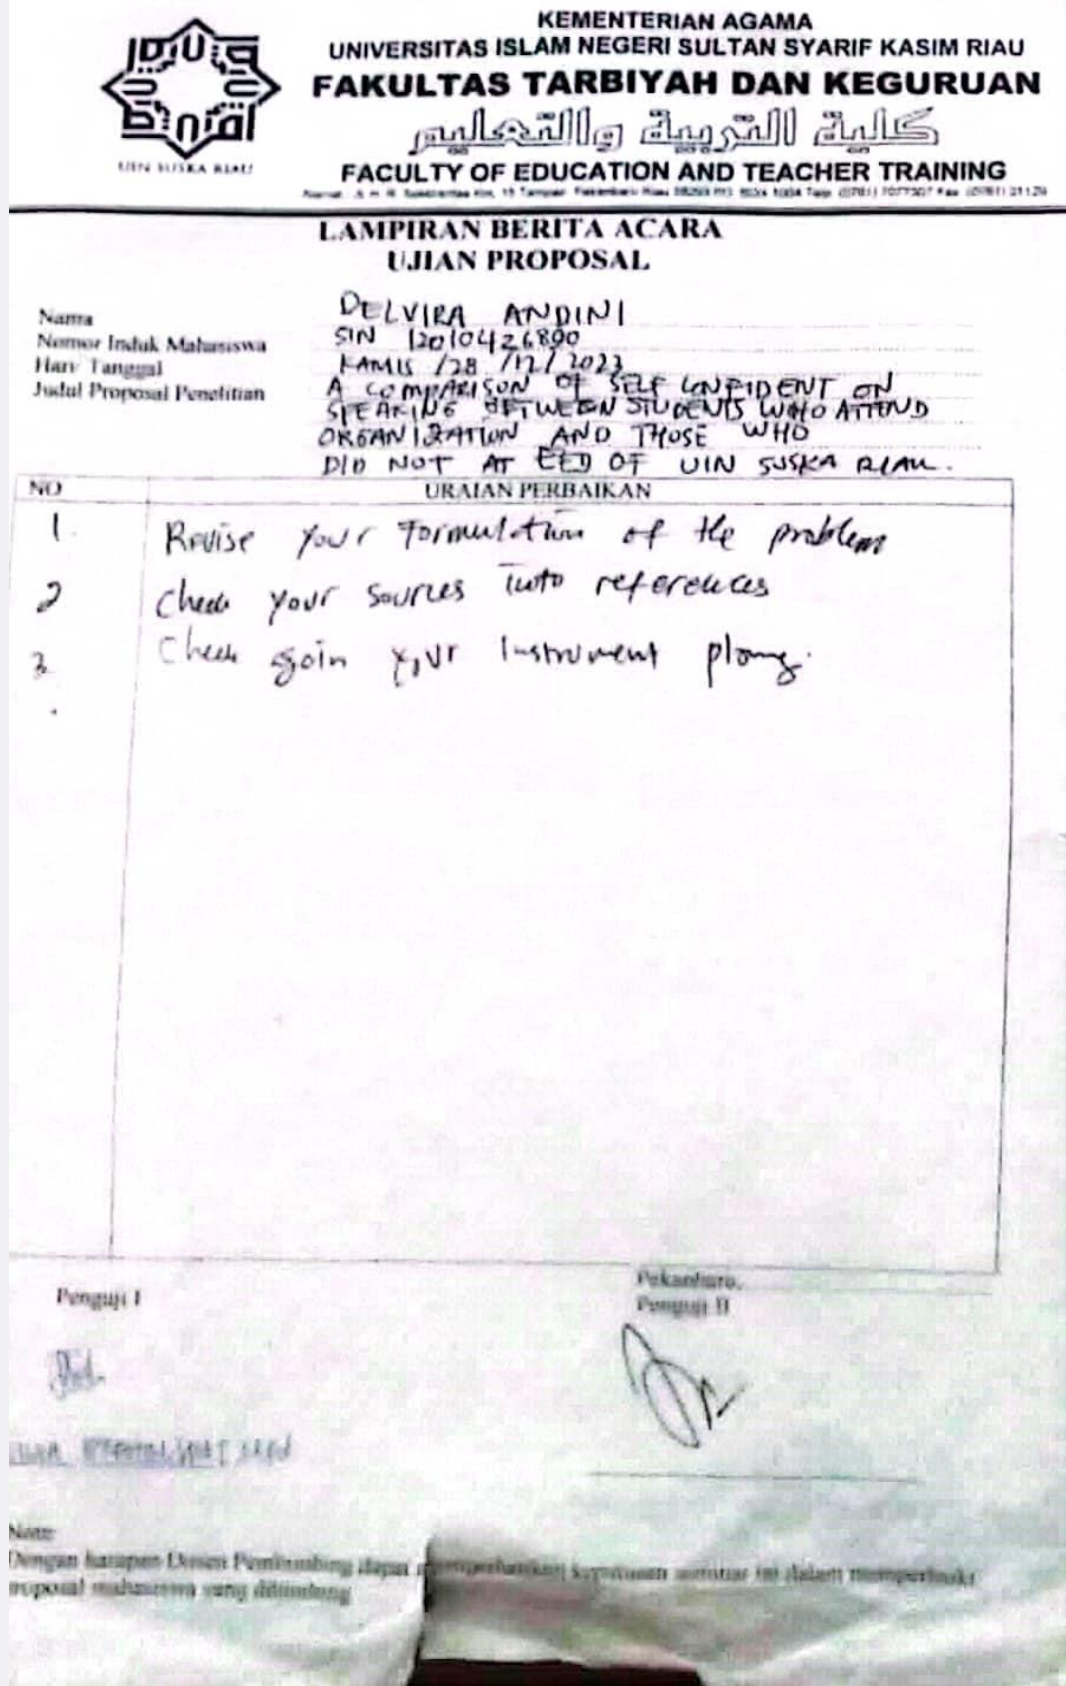 KEMENTERIAN AGAMA
UNIVERSITAS ISLAM NEGERI SULTAN SYARIF KASIM RIAU
FAKULTAS TARBIYAH DAN KEGURUAN
كلية التربية والتعليم
FACULTY OF EDUCATION AND TEACHER TRAINING
UIN SUSKA RIAU
LAMPIRAN BERITA ACARA
UJIAN PROPOSAL
Nama DELVIRA ANDINI
Nomor Induk Mahasiswa SIN 12010426890
Hari/ Tanggal KAMIS /28 /12/ 2023
Judul Proposal Penelitian A COMPARISON OF SELF CONFIDENT ON
SPEAKING BETWEEN STUDENTS WHO ATTEND
ORGANIZATION AND THOSE WHO
DID NOT AT EED OF UIN SUSKA RIAU.
NO URAIAN PERBAIKAN
1. Revise your Formulation of the problem
2 Check your sources into references
3 Check again your Instrument
Pekanbaru,
Penguji I Penguji II
Note
Dengan harapan Dosen Pembimbing dapat memperhatikan keputusan seminar ini dalam memperbaiki
proposal mahasiswa yang dibimbing